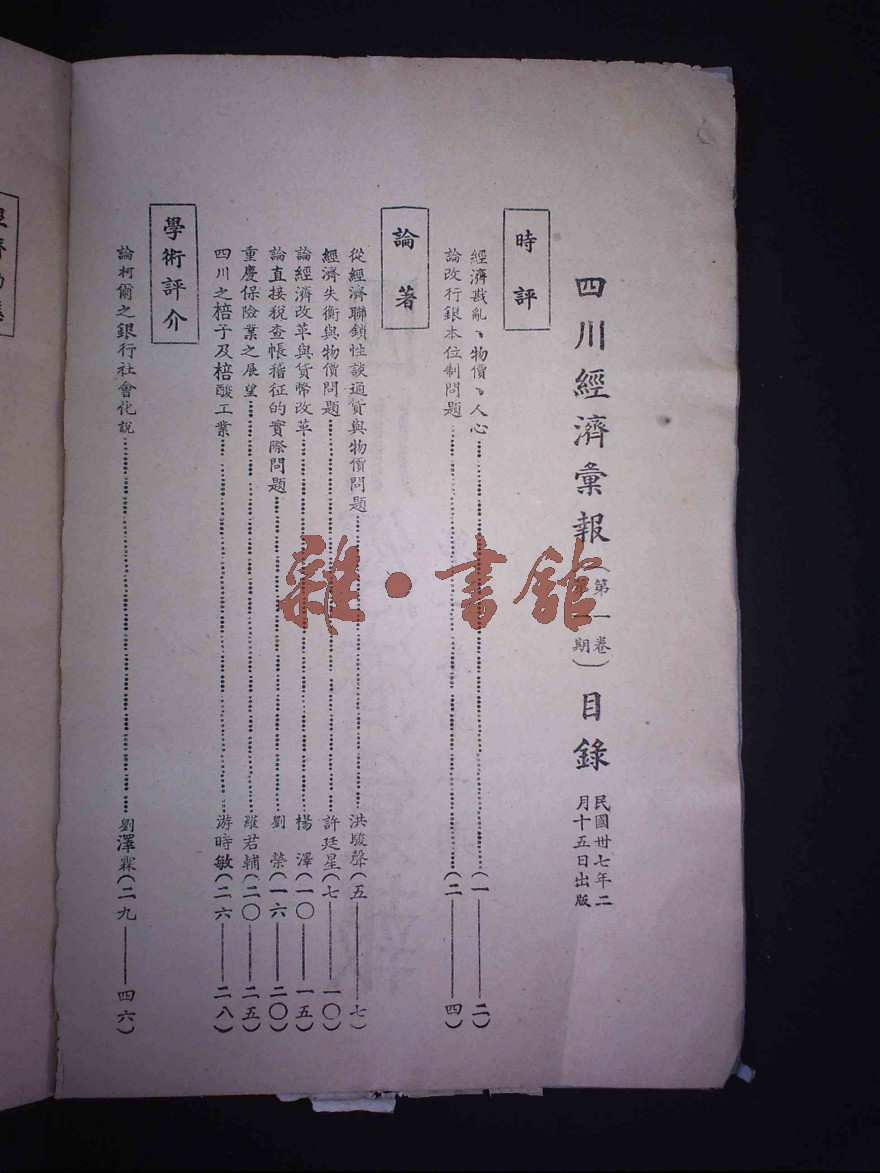 四川經濟彙報(第一卷第一期)目錄 民國卅七年二月十五日出版
時評
經濟戡亂、物價、人心……(一——二)
論改行銀本位制問題……(二——四)
論著
從經濟聯鎖性談通貨與物價問題……洪駿聲(五——七)
經濟失衡與物價問題……許廷星(七——一〇)
論經濟改革與貨幣改革……楊澤(一〇——一五)
論直接稅查帳稽征的實際問題……劉榮(一六——二〇)
重慶保險業之展望……羅君輔(二〇——二五)
四川之棓子及棓酸工業……游時敏(二六——二八)
學術評介
論柯爾之銀行社會化說……劉澤霖(二九——四六)
雜·書館